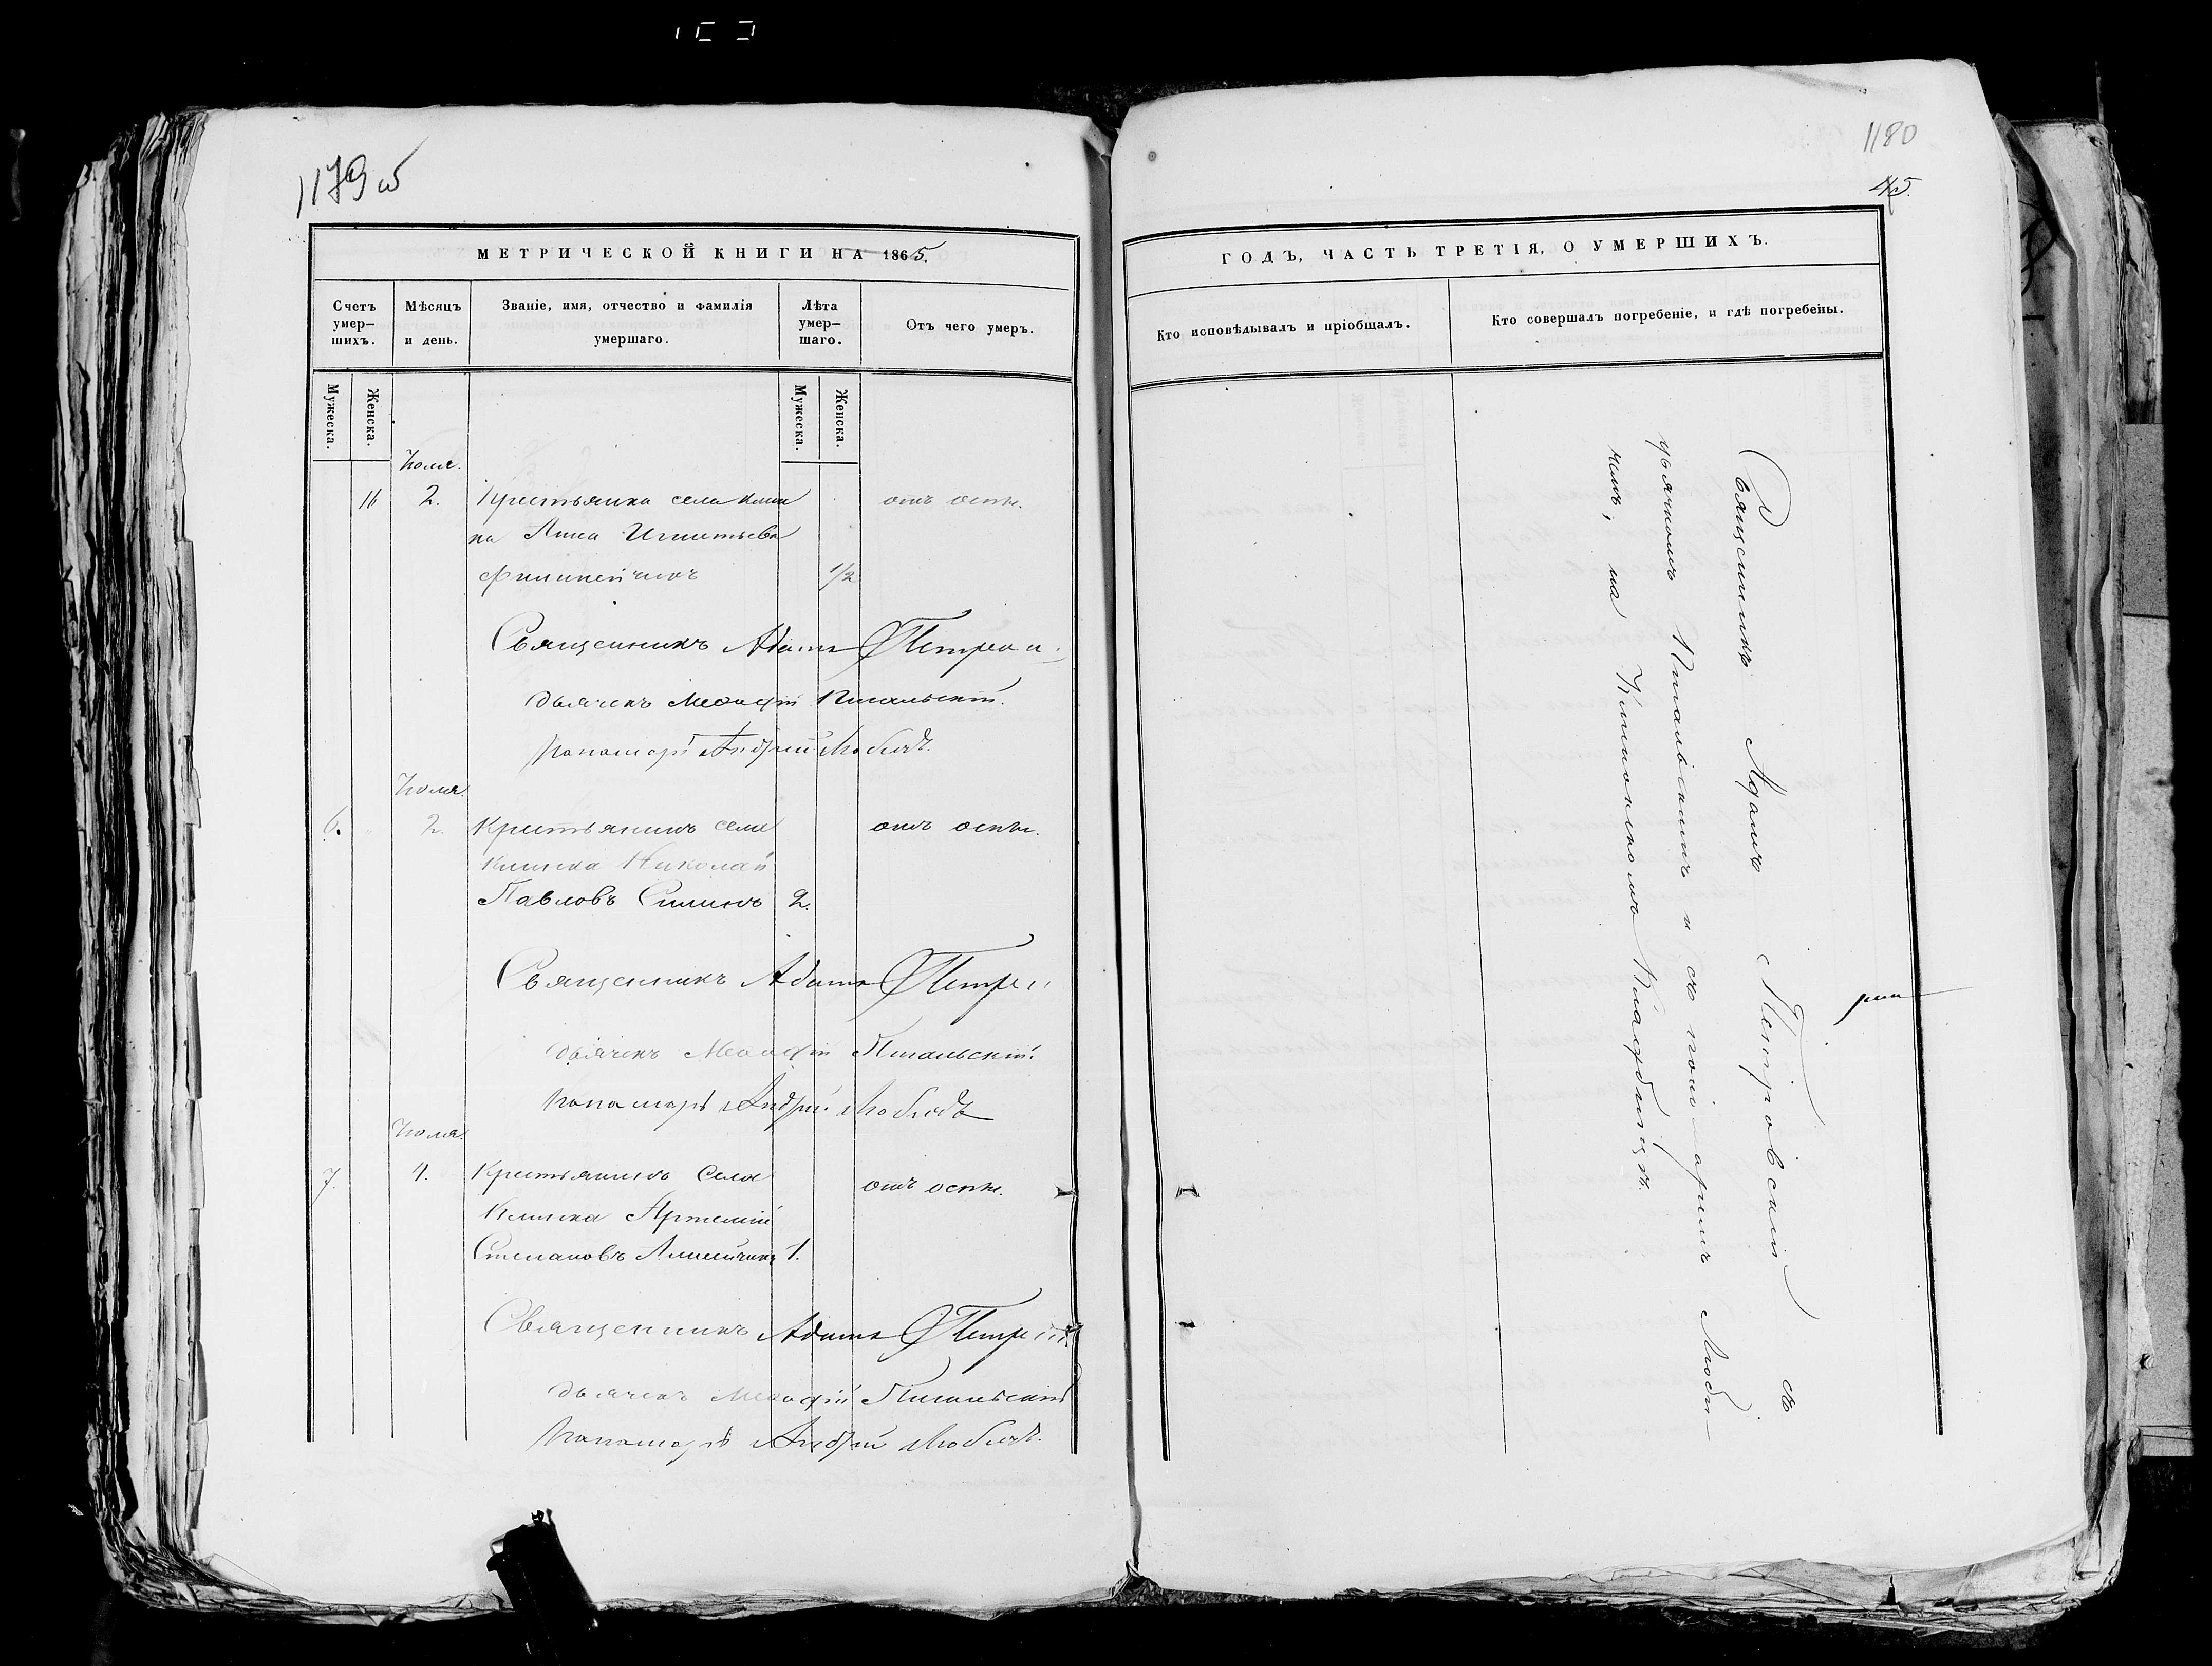 1179 об
МЕТРИЧЕСКОЙ КНИГИ НА 1865.
Счетъ умер-шихъ.
Мѣсяцъ и день.
Званіе, имя, отчество и фамилія умершаго.
Лѣта умер-шаго.
Отъ чего умеръ.
Мужеска.
Женска.
Мужеска.
Женска.
Іюля.
16 2. Крестьянка села Клин
ка Анна Игнатьева отъ оспы.
1/2
Священникъ Адамъ Петров
дьячекъ Меѳодій Пигальскій.
Пономарь Андрей Любичъ.
Іюля.
6. 2. Крестьянинъ села отъ оспы.
Клинка Николай
Павловъ 2.
Священникъ Адамъ Петро
дьячекъ Меѳодій Пигальскій.
Пономарь Андрей Любичъ
Іюля.
7. 4. Крестьянинъ села отъ оспы.
Клинка Артемій
Степановъ 1.
Священникъ Адамъ Петро
дьячекъ Меѳодій Пигальскій
Пономарь Андрей Любичъ.
1180
45.
ГОДЪ, ЧАСТЬ ТРЕТІЯ, О УМЕРШИХЪ.
Кто исповѣдывалъ и пріобщалъ.
Кто совершалъ погребеніе, и гдѣ погребены.
Священникъ Адамъ Петровскій съ
дьячкомъ Пигальскимъ и съ пономаремъ Люби-
чемъ, на Клинскомъ кладбищѣ.